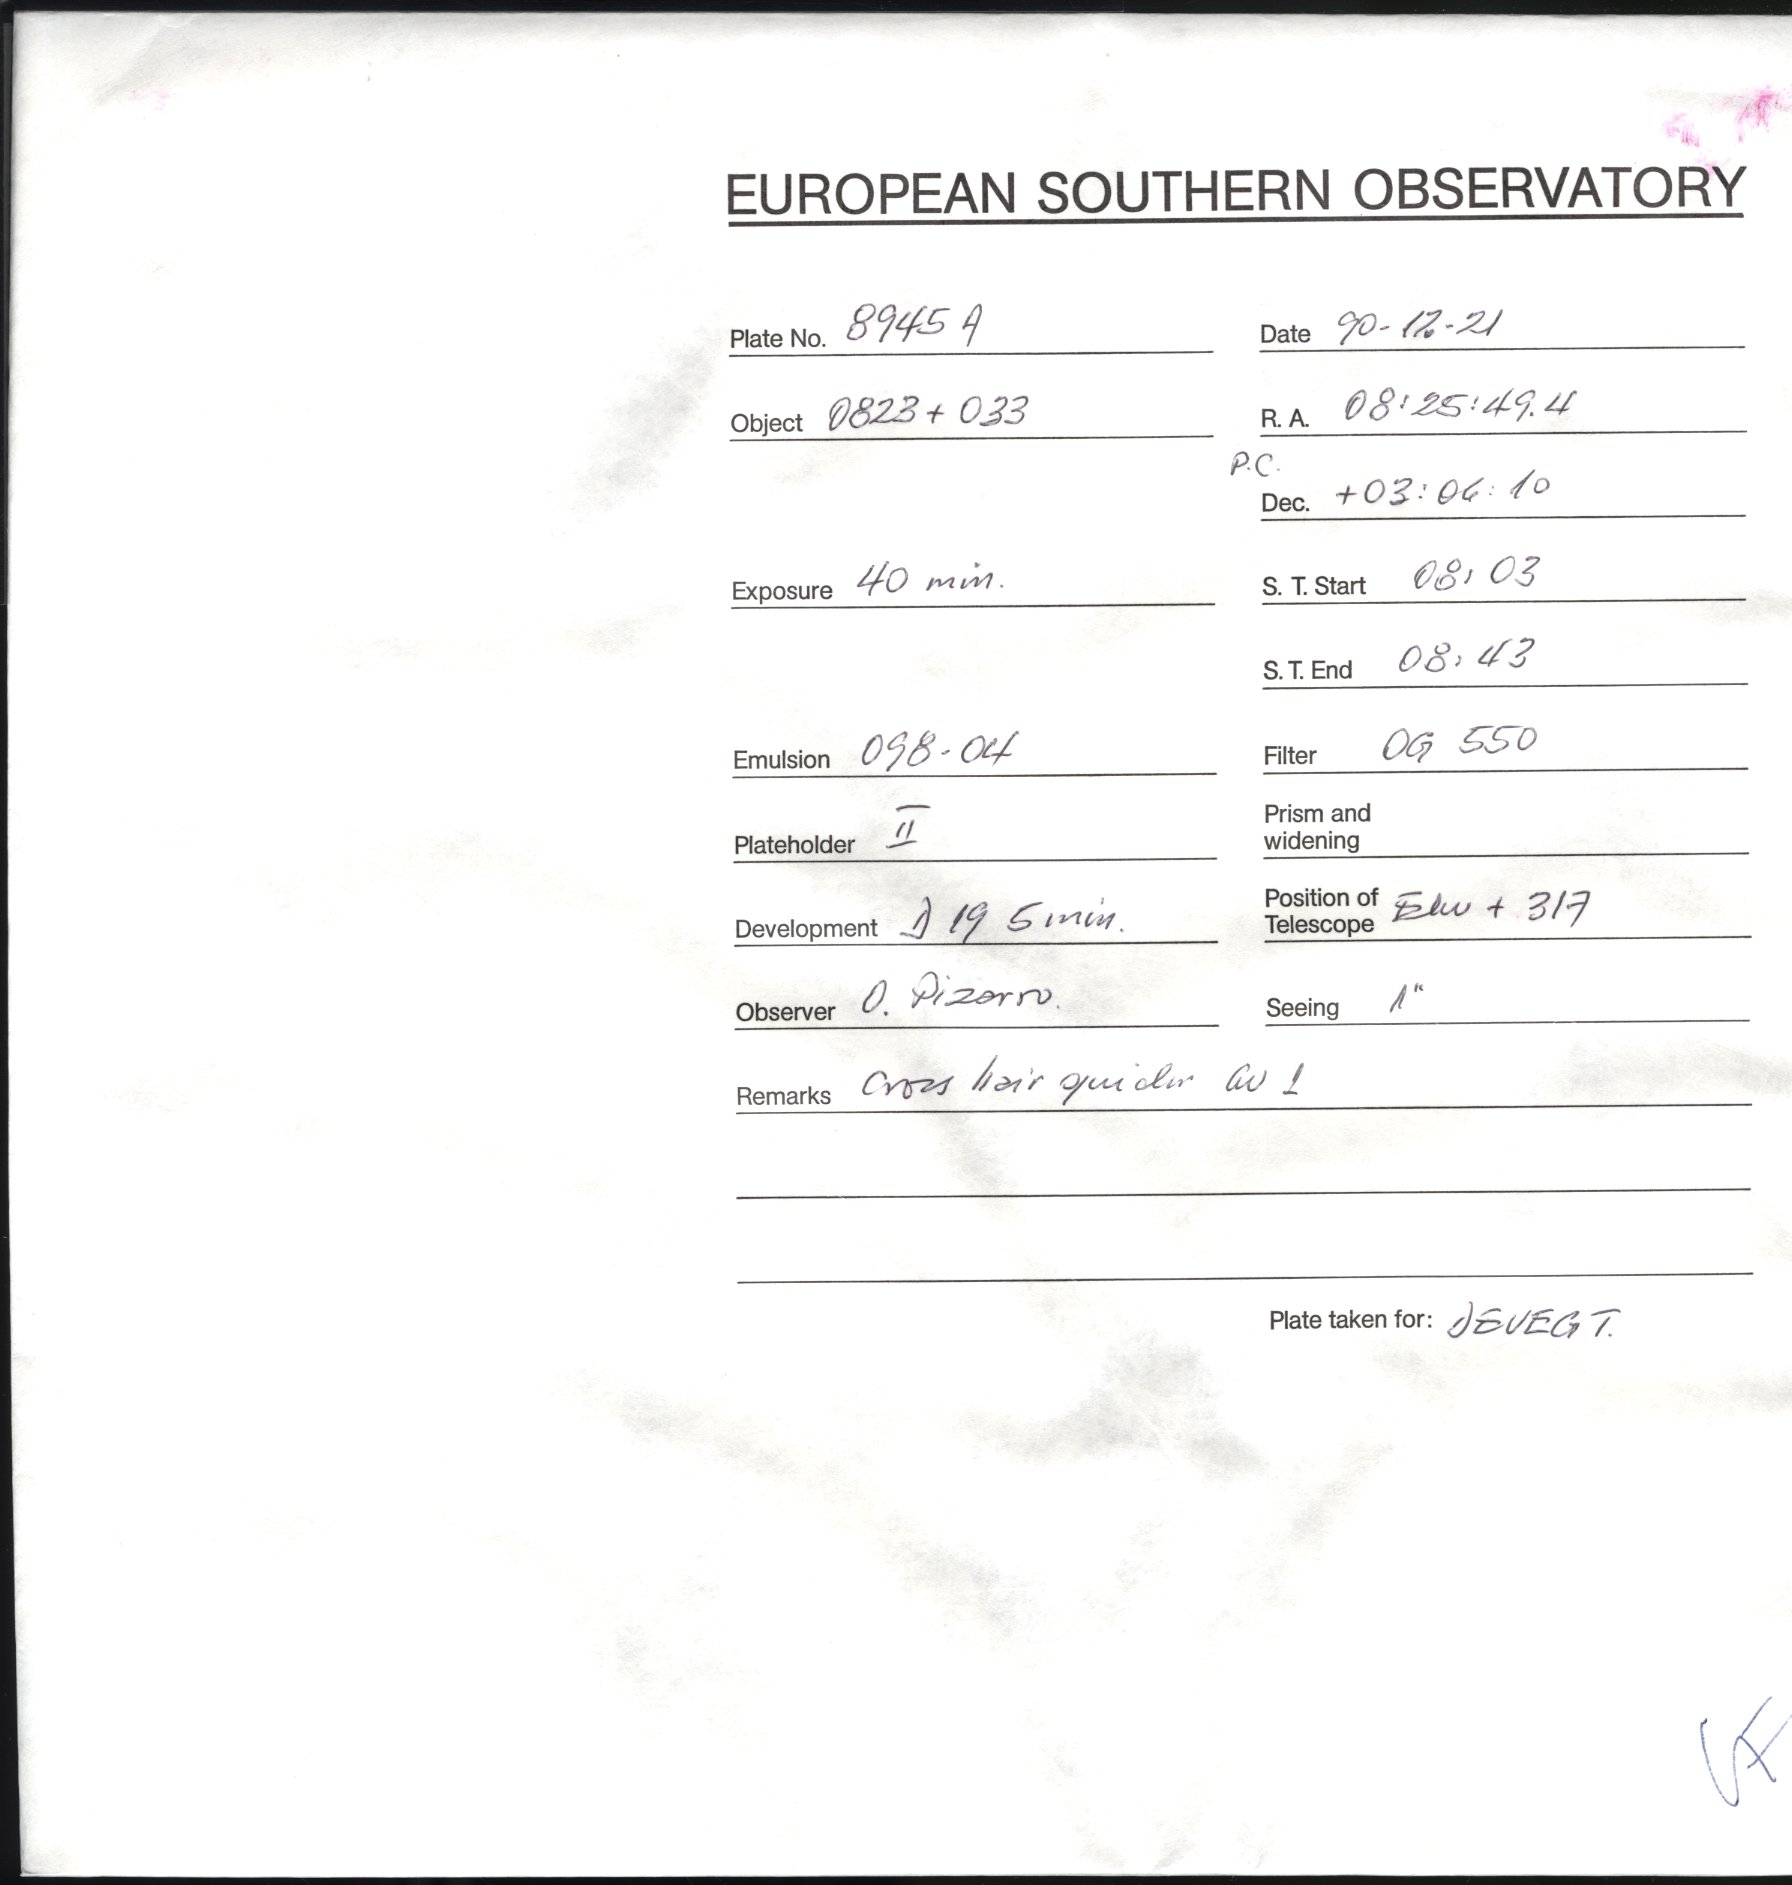 EUROPEAN SOUTHERN OBSERVATORY
Plate No. 8945 A
Date 90-12-21
Object 0823+033
R. A. 08:25:49.4
P.C.
Dec. +03:06:10
Exposure 40 min.
S. T. Start 08:03
S. T. End 08:43
Emulsion 098-04
Filter OG 550
Plateholder II
Prism and
widening
Development D 19 5 min.
Position of
Telescope + 317
Observer O. Pizarro.
Seeing 1"
Remarks Cross hair guider 1
Plate taken for: DEVEGT.